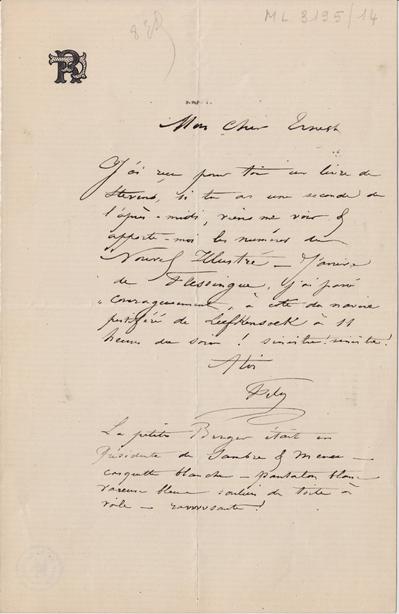 ML 3195/14
FR
Mon cher Ernest
J'ai reçu pour toi un livre de
Stevens, si tu as une seconde de
l'après-midi, viens me voir &
apporte-moi les numéros du
Nouvel Illustré — J'arrive
de Flessingue, j'ai passé
courageusement, à côté du navire
pestiféré de Liefkenshoek à 11
heures du soir! sinistre! sinistre!
A toi
Fély
La petite Burger était en
Présidente de Sambre & Meuse —
casquette blanche — pantalon blanc
vareuse bleue souliers de toile à
voile — ravissante!